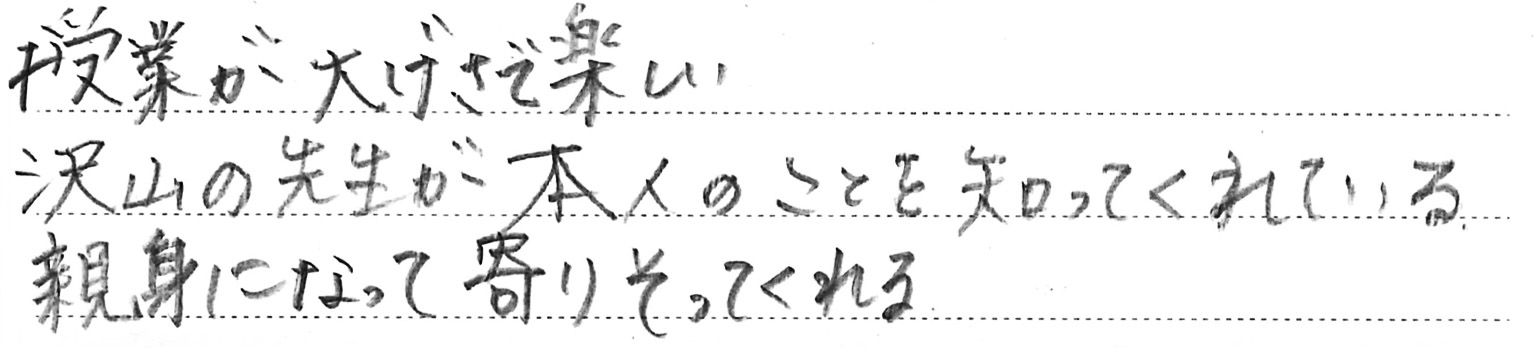 授業が大げさで楽しい
沢山の先生が本人のことを知ってくれている
親身になって寄りそってくれる